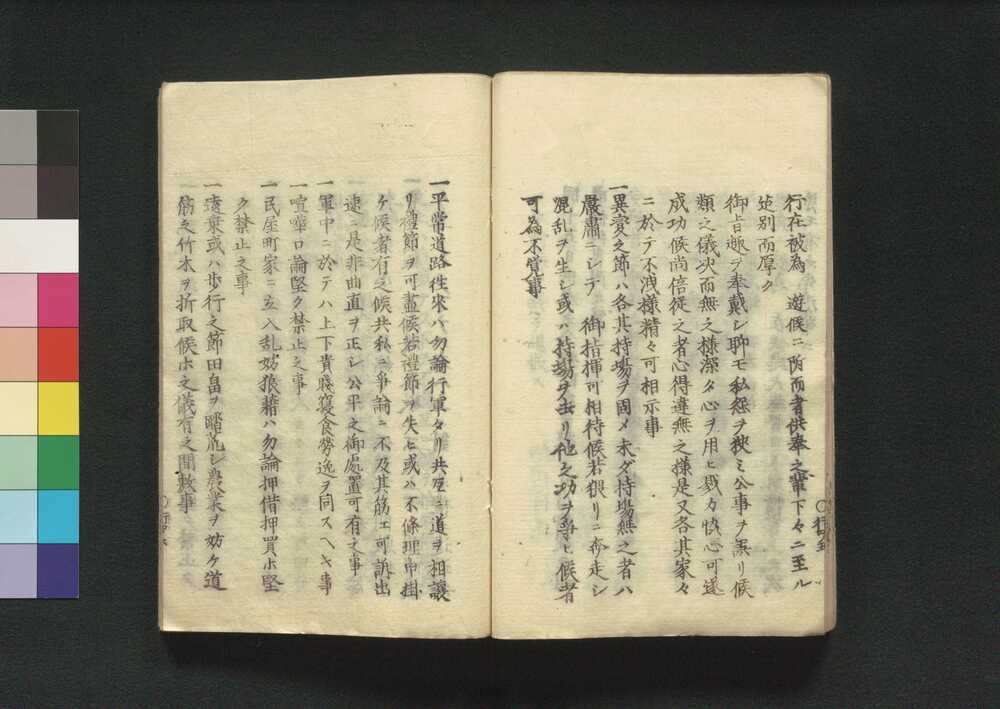 行在被為　遊候ニ付而者供奉之輩下々ニ至ル
迄別而厚ク
御旨趣ヲ奉戴シ聊モ私怨ヲ狭ミ公事ヲ誤リ候
類之儀决而無之様深タ心ヲ用ヒ戮力快心可遂
成功候尚倍従之者心得違無之様是又各其家々
ニ於テ不洩様精々可相示事
一異変之節ハ各其持場ヲ固メ未ダ持場無之者ハ
嚴肅ニシテ　御指揮可相待候若猥リニ奔走シ
混乱ヲ生シ或ハ持場ヲ去リ他之功ヲ争ヒ候者
可為不覚事
一平常道路徃來ハ勿論行軍タリ共互ニ道ヲ相讓
リ禮節ヲ可盡候若禮節ヲ失ヒ或ハ不條理申掛
ケ候者有之候共私ニ争論ニ不及其筋エ可訴出
速ニ是非曲直ヲ正シ公平之御處置可有之事
一軍中ニ於テハ上下貴賤寝食勞逸ヲ同スヘキ事
一喧嘩口論堅ク禁止之事
一民屋町家ニ立入乱妨狼藉ハ勿論押借押買ホ堅
ク禁止之事
一遠乗或ハ歩行之節田畠ヲ蹂荒シ農業ヲ妨ケ道
筋之竹木ヲ折取候ホ之儀有之間敷事